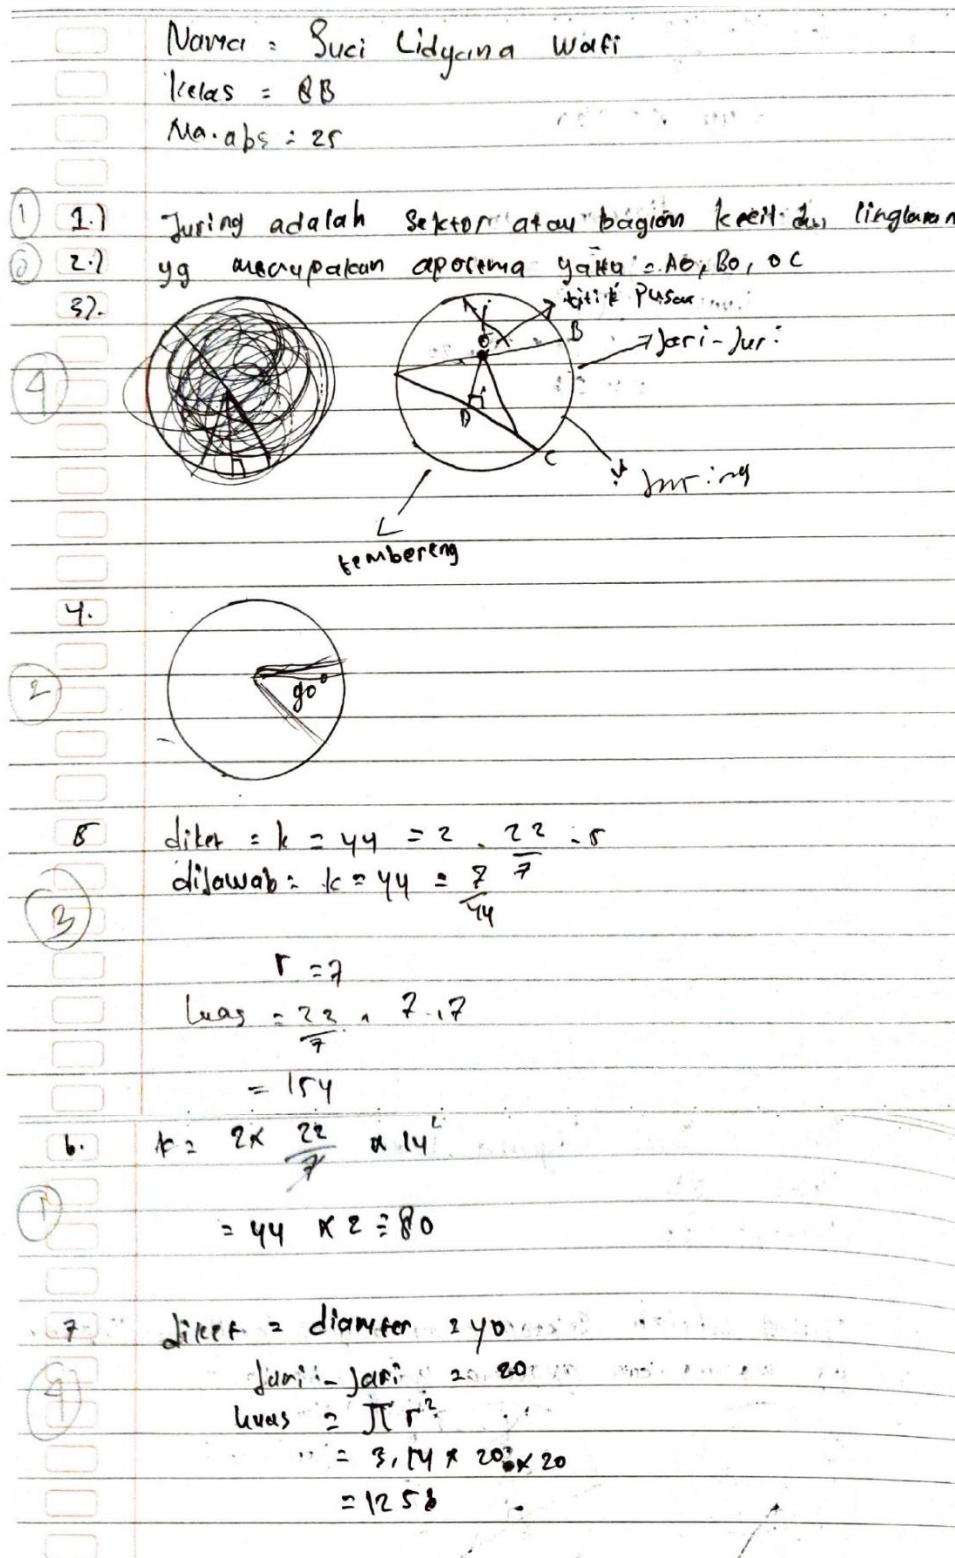 Nama = Suci Lidyana Wafi
Kelas = 8B
No. abs = 25
① 1.) Juring adalah Sektor atau bagian kecil dari lingkaran
⓪ 2.) yg merupakan apotema yaitu = AO, BO, OC
3).
④
titik Pusat
O
B
Jari-Jari
D
C
Juring
tembereng
4.
②
90°
5 diket = k = 44 = 2 . 22/7 . r
dijawab = k = 44 = 7/44
③
r = 7
luas = 22/7 . 7 . 7
= 154
6. k = 2 x 22/7 x 14²
①
= 44 x 2 = 80
7 diket = diameter = 40
④
Jari-Jari = 20
luas = π r²
= 3,14 x 20 x 20
= 1258